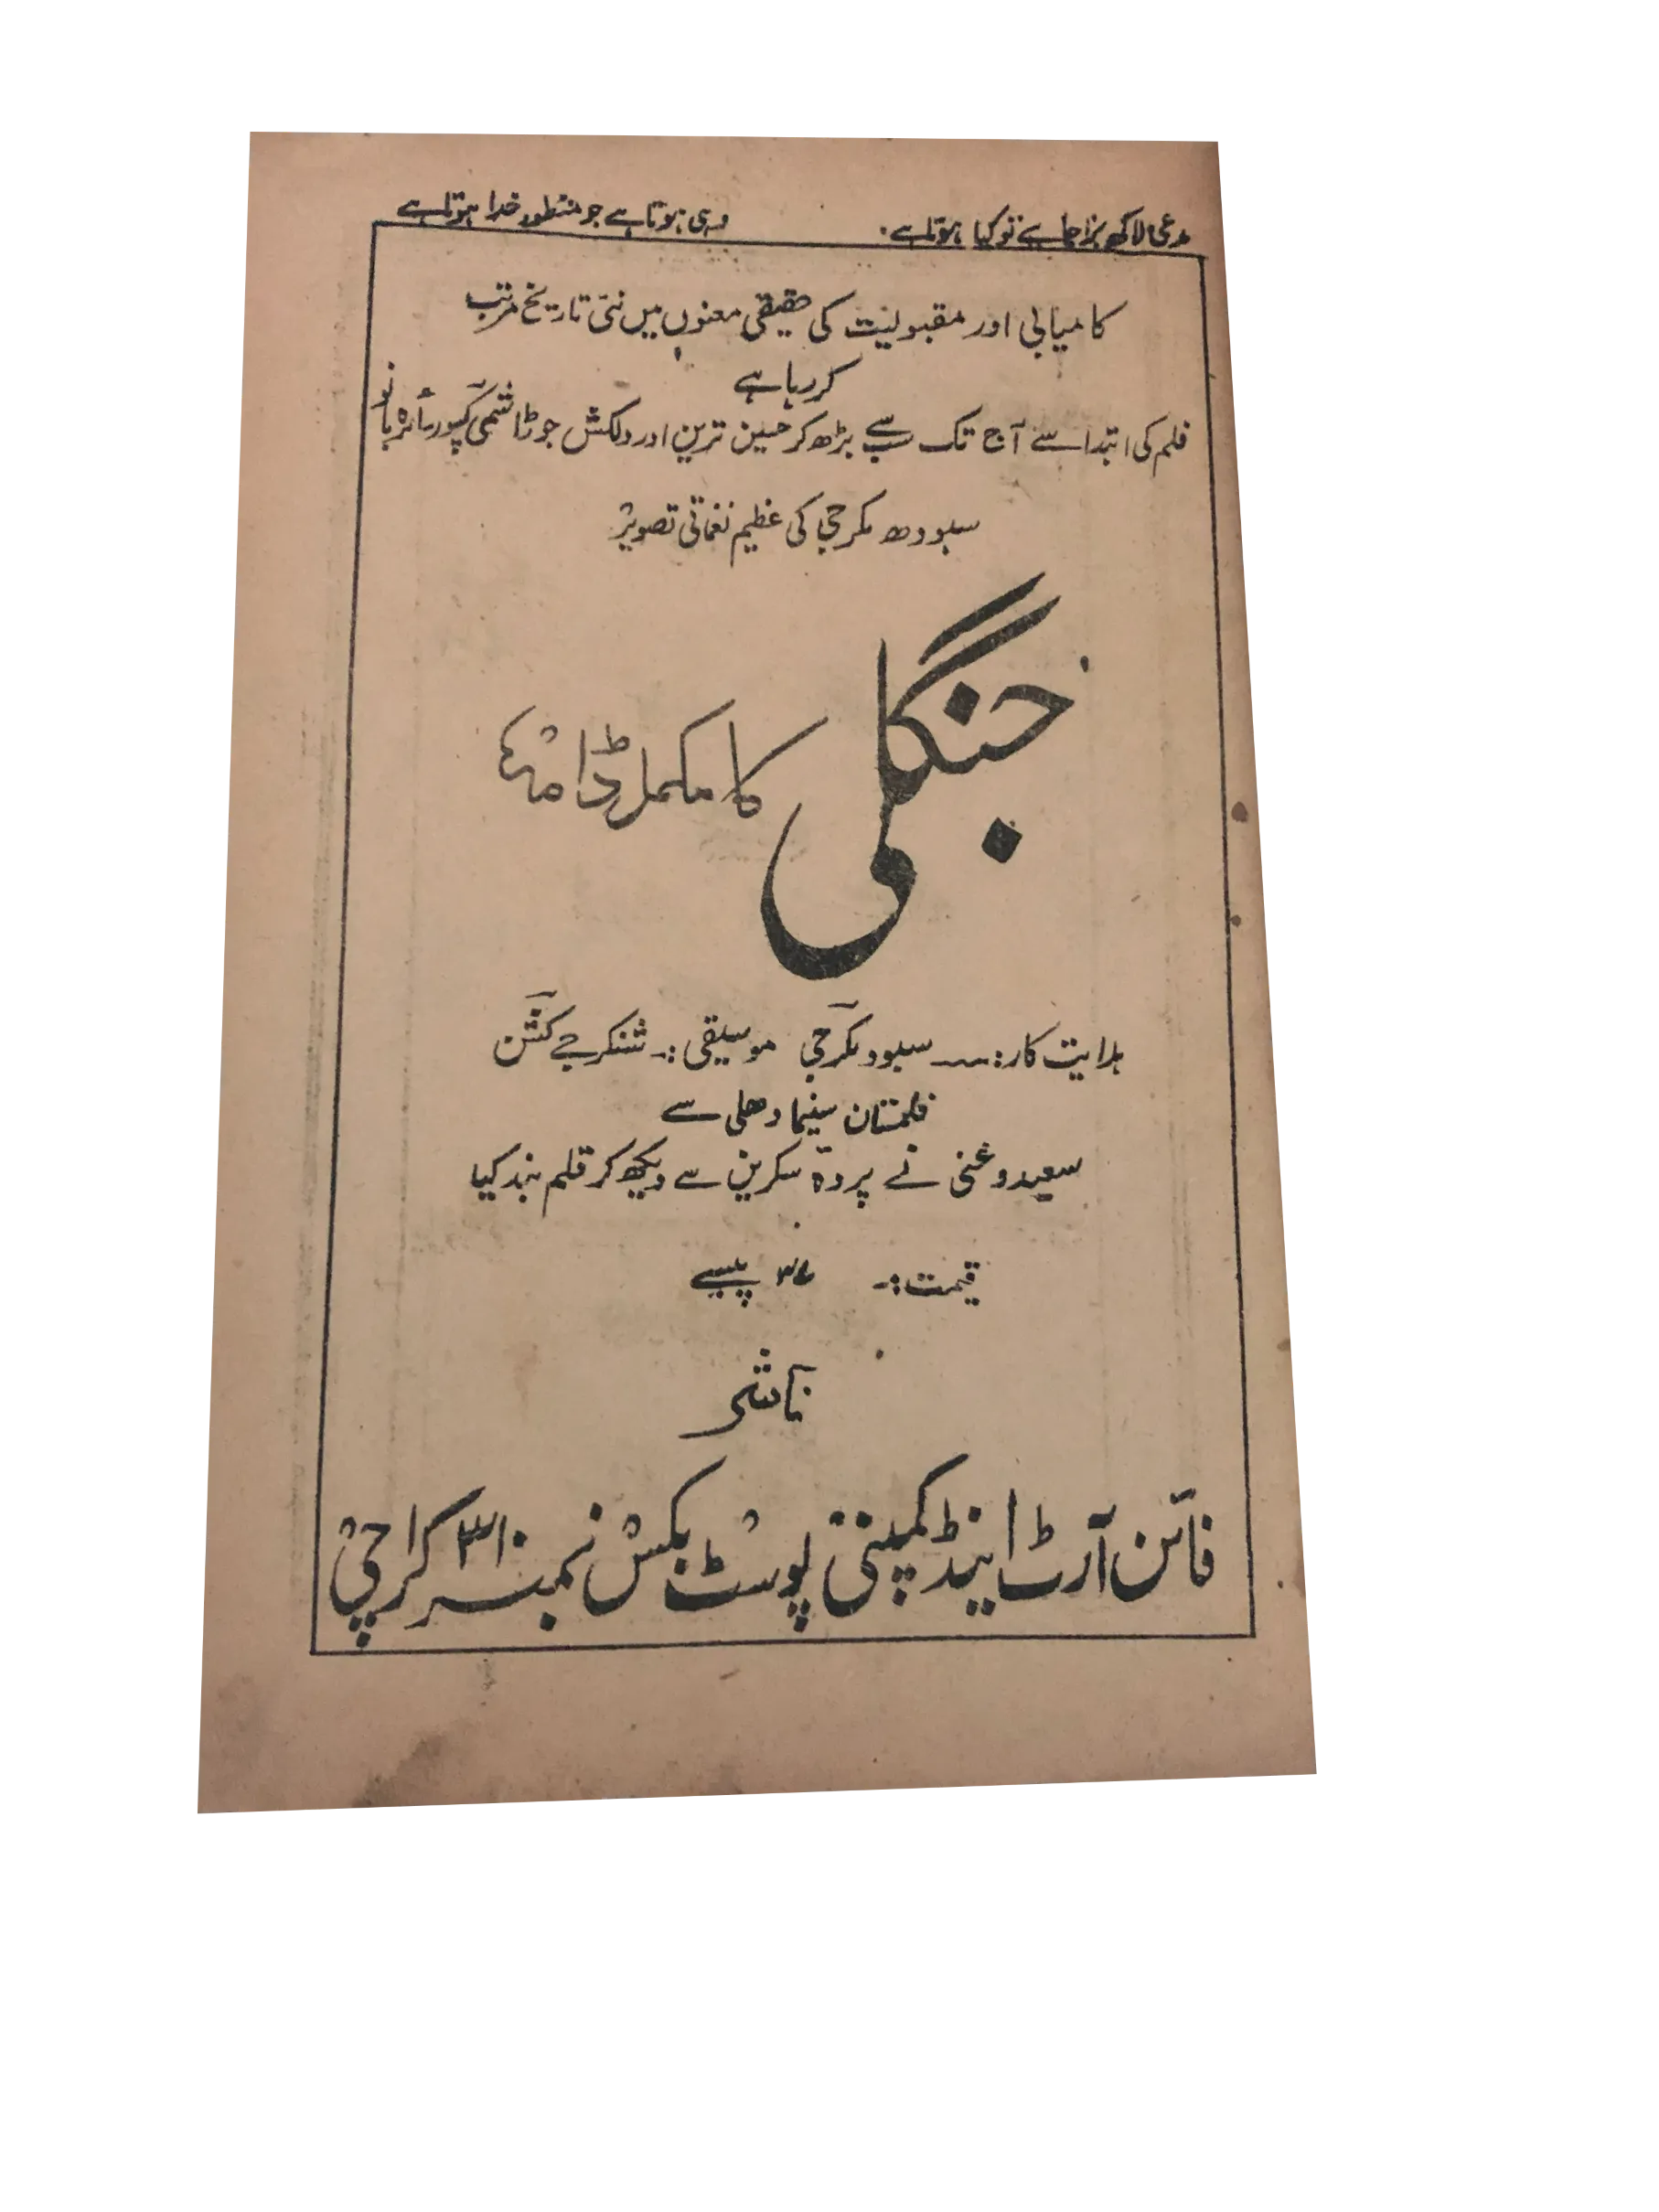 مدعی لاکھ برا چاہے تو کیا ہوتا ہے۔ وہی ہوتا ہے جو منظور خدا ہوتا ہے
کامیابی اور مقبولیت کی حقیقی معنوں میں نئی تاریخ مرتب
کر رہا ہے
فلم کی ابتدا سے آج تک سب سے بڑھ کر حسین ترین اور دلکش جوڑا شمی کپور سائرہ بانو
سبودھ مکرجی کی عظیم نغماتی تصویر
جنگلی کا مکمل ڈرامہ
ہدایت کار:۔ سبود مکرجی موسیقی:۔ شنکر جے کشن
فلمستان سینما دھلی سے
سعید و غنی نے پردۂ سکرین سے دیکھ کر قلم بند کیا
قیمت:۔ ۳۷ پیسے
ناشر
فائن آرٹ اینڈ کمپنی پوسٹ بکس نمبر ۳۱۰ کراچی